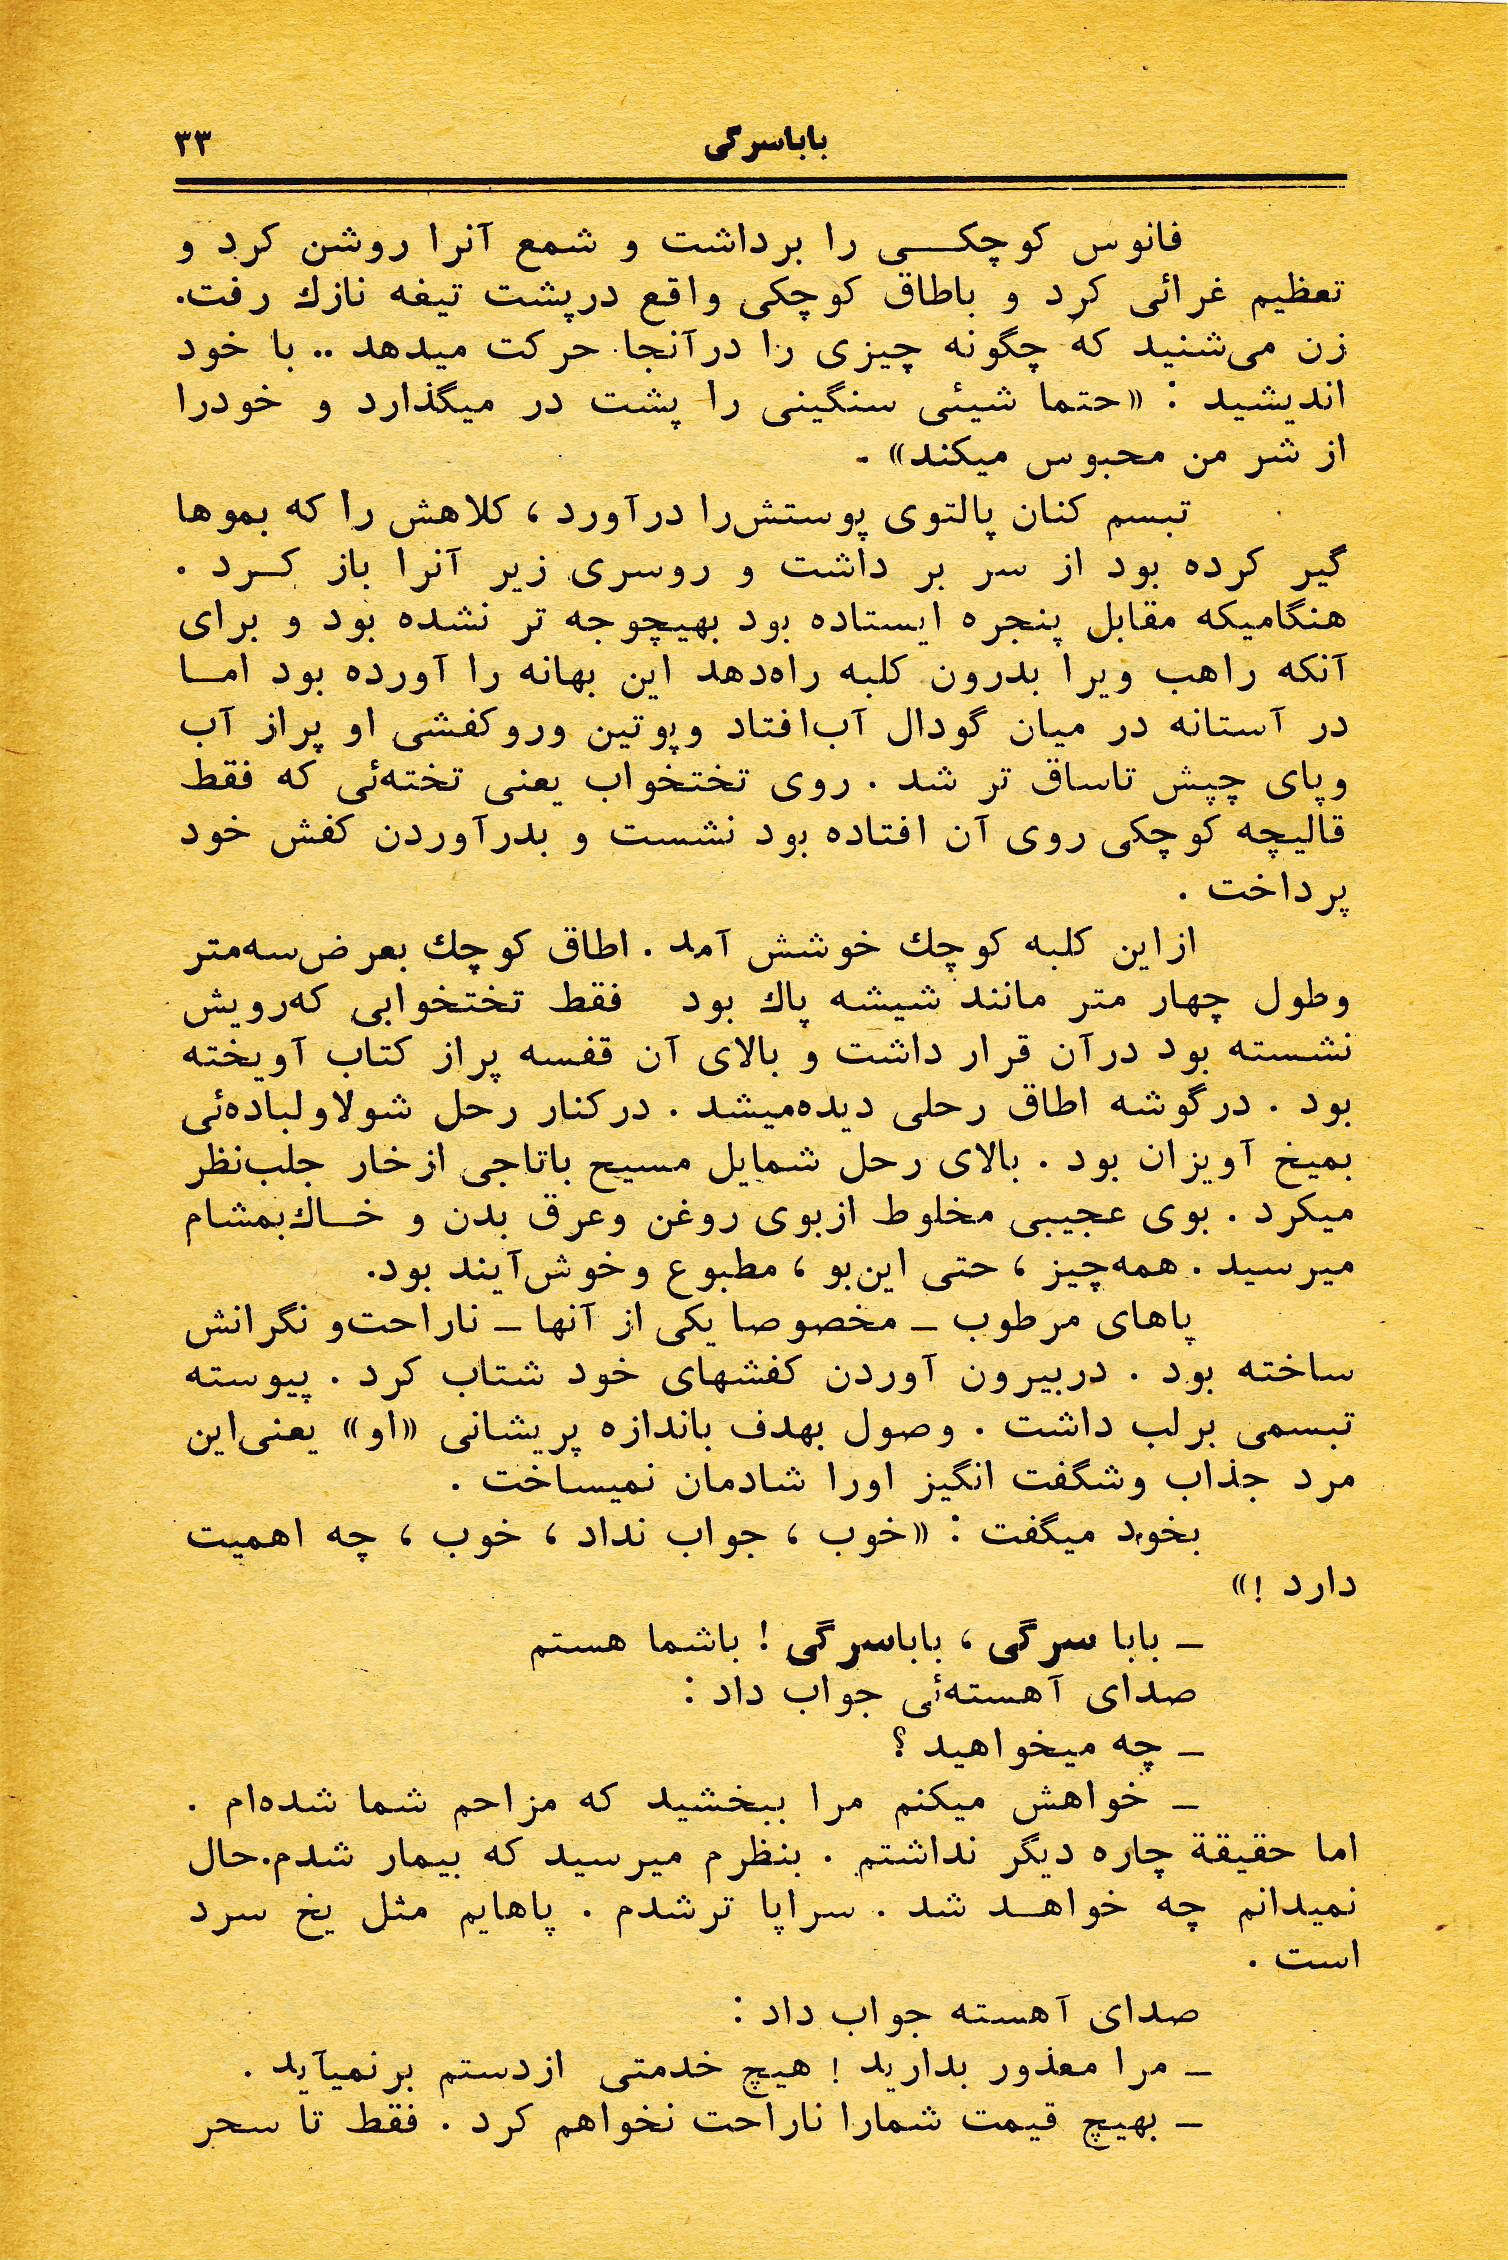 باباسرگی
۳۳
فانوس کوچکی را برداشت و شمع آنرا روشن کرد و
تعظیم غرائی کرد و باطاق کوچکی واقع درپشت تیغه نازك رفت.
زن می‌شنید که چگونه چیزی را درآنجا حرکت میدهد .. با خود
اندیشید : «حتما شیئی سنگینی را پشت در میگذارد و خودرا
از شر من محبوس میکند» .
تبسم کنان پالتوی پوستش‌را درآورد ، کلاهش را که بموها
گیر کرده بود از سر بر داشت و روسری زیر آنرا باز کرد .
هنگامیکه مقابل پنجره ایستاده بود بهیچوجه تر نشده بود و برای
آنکه راهب ویرا بدرون کلبه راه‌دهد این بهانه را آورده بود اما
در آستانه در میان گودال آب‌افتاد وپوتین وروکفشی او پراز آب
وپای چپش تاساق تر شد . روی تختخواب یعنی تخته‌ئی که فقط
قالیچه کوچکی روی آن افتاده بود نشست و بدرآوردن کفش خود
پرداخت .
ازاین کلبه کوچك خوشش آمد . اطاق کوچك بعرض‌سه‌متر
وطول چهار متر مانند شیشه پاك بود فقط تختخوابی که‌رویش
نشسته بود درآن قرار داشت و بالای آن قفسه پراز کتاب آویخته
بود . درگوشه اطاق رحلی دیده‌میشد . درکنار رحل شولاولباده‌ئی
بمیخ آویزان بود . بالای رحل شمایل مسیح باتاجی ازخار جلب‌نظر
میکرد . بوی عجیبی مخلوط ازبوی روغن وعرق بدن و خاك‌بمشام
میرسید . همه‌چیز ، حتی این‌بو ، مطبوع وخوش‌آیند بود.
پاهای مرطوب ـ مخصوصا یکی از آنها ـ ناراحت‌و نگرانش
ساخته بود . دربیرون آوردن کفشهای خود شتاب کرد . پیوسته
تبسمی برلب داشت . وصول بهدف باندازه پریشانی «او» یعنی‌این
مرد جذاب وشگفت انگیز اورا شادمان نمیساخت .
بخود میگفت : «خوب ، جواب نداد ، خوب ، چه اهمیت
دارد !»
ـ بابا سرگی ، باباسرگی ! باشما هستم
صدای آهسته‌ئی جواب داد :
ـ چه میخواهید ؟
ـ خواهش میکنم مرا ببخشید که مزاحم شما شده‌ام .
اما حقیقة چاره دیگر نداشتم . بنظرم میرسید که بیمار شدم.حال
نمیدانم چه خواهد شد . سراپا ترشدم . پاهایم مثل یخ سرد
است .
صدای آهسته جواب داد :
ـ مرا معذور بدارید ! هیچ خدمتی ازدستم برنمیآید .
ـ بهیچ قیمت شمارا ناراحت نخواهم کرد . فقط تا سحر